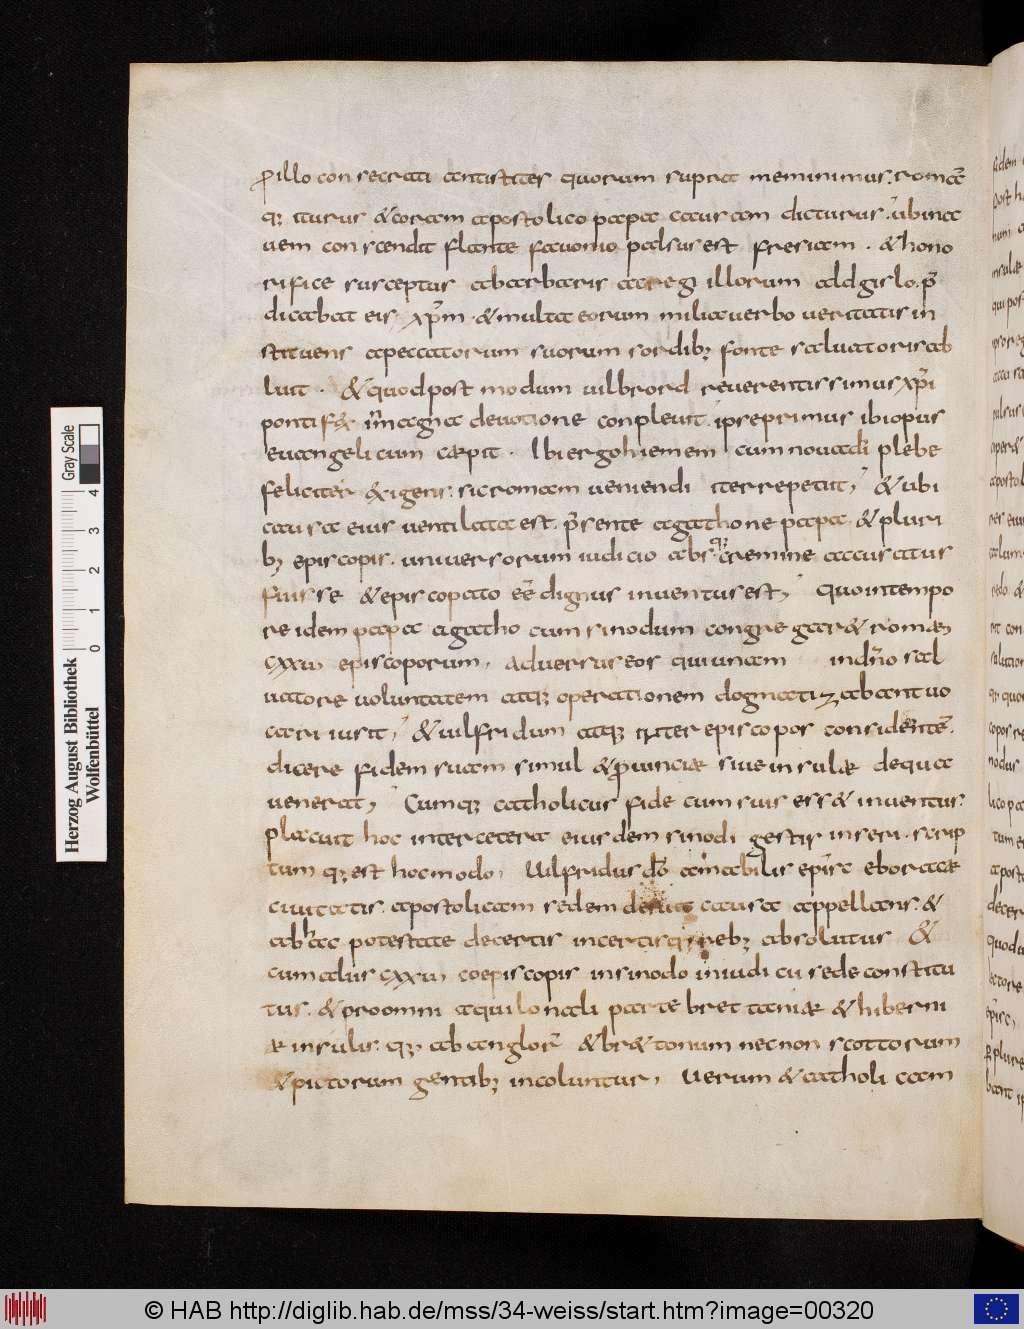 ꝓ illo consecrati antistites quorum supra meminimus. romā
q; iturus & coram apostolico papa causam dicturus. ubi na
uem conscendit flante fauonio pulsus est fresiam. & hono
rifice susceptus a barbaris ac rege illorum aldgislo. p̄
dicabat eis xp̄m. & multa eorum milia uerbo ueritatis in
stituens a peccatorum suorum sordib; fonte saluatoris ab
luit. & quod postmodum uilbrord reuerentissimus xp̄i
pontifex in magna deuotione conpleuit. ipse primus ibi opus
euangelicum cæpit. Ibi ergo hiemem cum noua di plebe
feliciter exigens. sic romam ueniendi iter repetiit, & ubi
causa eius uentilata est. p̄sente agathone papa & pluri
b; episcopis. uniuersorum iudicio absq; crimine accusatus
fuisse & episcopato eē dignus inuentus est, Quo in tempo
re idem papa agatho cum sinodum congregar& romæ,
cxxu episcoporum, aduersus eos qui unam in dn̄o sal
uatore uoluntatem atq; operationem dogmatizabant uo
cari iusit, & uilfridum atq; inter episcopos considentē.
dicere fidem suam simul & ꝓuinciæ siue insulæ de qua
uenerat, Cumq; catholicus fide cum suis ess& inuentus.
placuit hoc inter cetera eiusdem sinodi gestis inseri. scrip
tum q; est hoc modo, Uilfridus dō amabilis epīsc eboracæ
ciuitatis. apostolicam sedem de sua causa appellans. &
ab hac potestate de certis incertisq; reb; absolutus &
cum aliis cxxu, coepiscopis in sinodo in iudicii sede constitu
tus. & pro omni aquilonali parte brettaniæ & hiberni
æ insulis. q; ab anglor̄ & br&tonum necnon scottorum
& pictorum gentib; incoluntur, Uerum & catholicam
Herzog August Bibliothek
Wolfenbüttel
0 1 2 3 4
Gray Scale
© HAB http://diglib.hab.de/mss/34-weiss/start.htm?image=00320